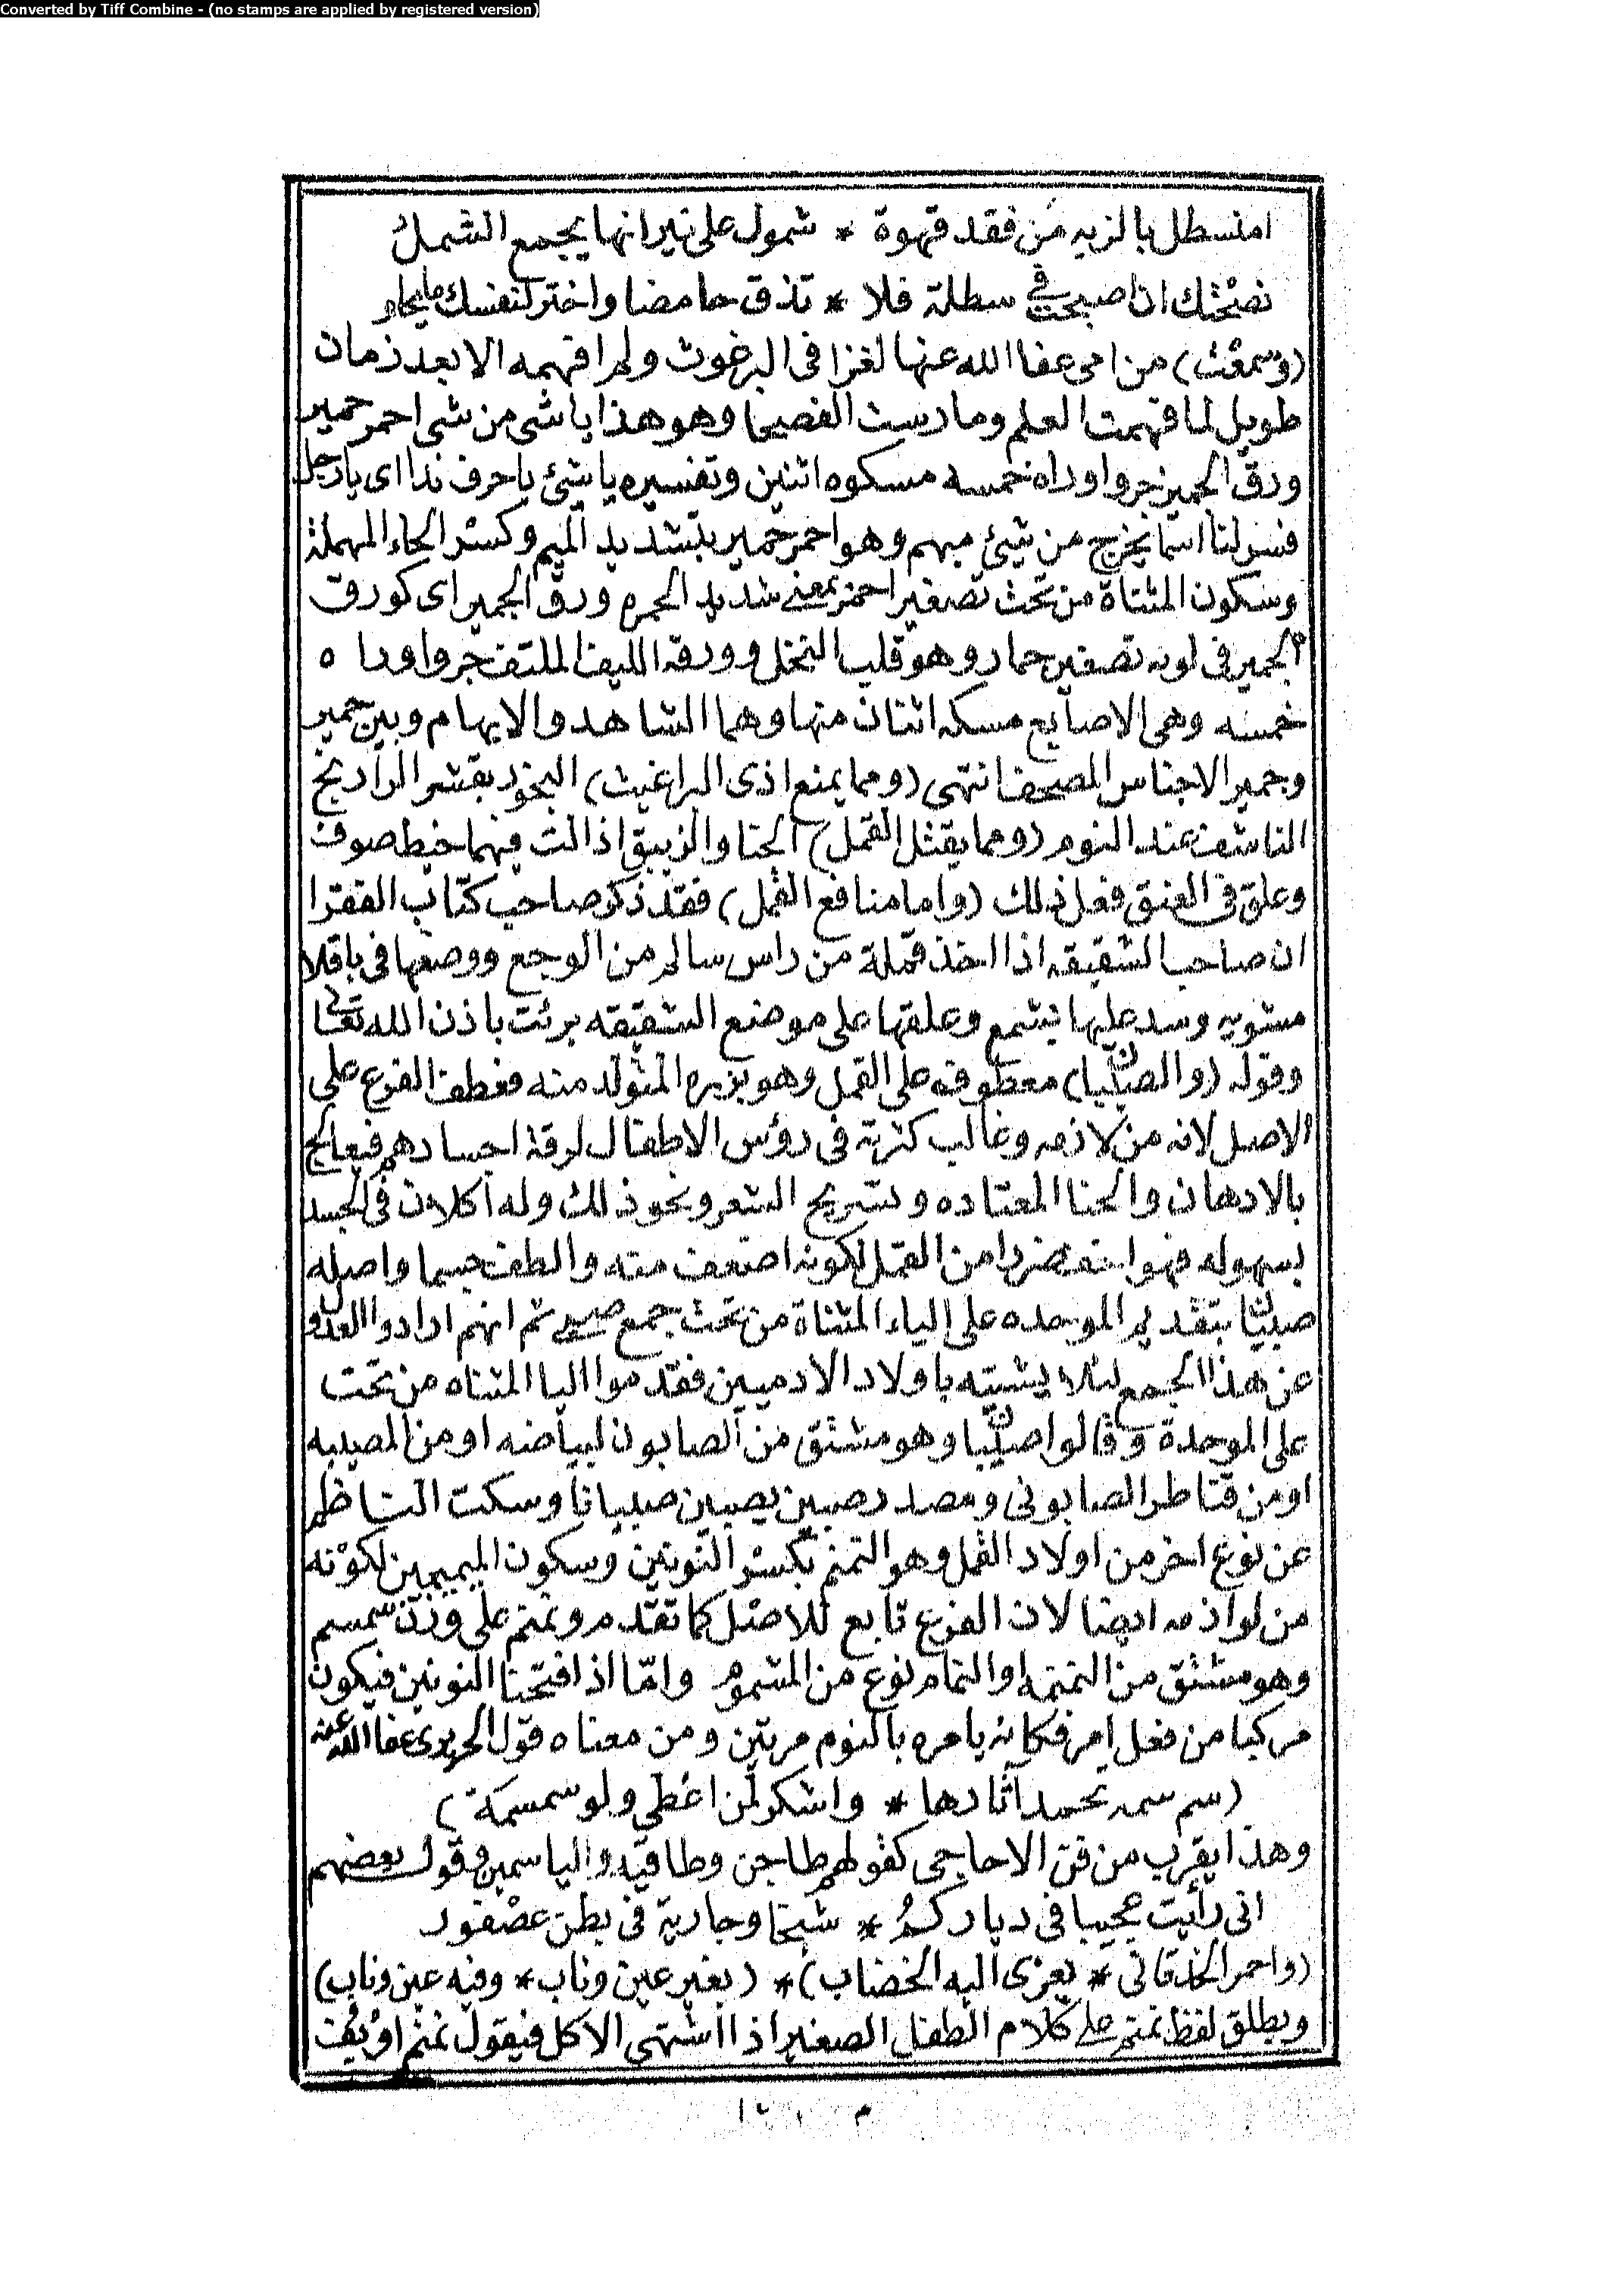 Converted by Tiff Combine - (no stamps are applied by registered version)
امنسطل بالزيه من فقد قهوة * شمول على نيرانها يجمع الشمل
نصحتك ان اصبحت في سطلة فلا * تذق حامضا واختر لنفسك ما يحلو
(وسمعت) من امى عفا الله عنها لغزا فى البرغوث ولم افهمه الا بعد زمان
طويل لما فهمت العلم ومارست الفصيحا وهو هذا ياشى من شى احمر حمير
ورق الجمير جروا وراه خمسه مسكوه اثنين وتفسيره ياشئ يا حرف ندا اى يارجل
فسر لنا اسما يخرج من شئ مبهم وهو احمر حمير بتشديد الميم وكسر الحاء المهملة
وسكون المثناة من تحت تصغير احمر بمعنى شديد الحمره ورق الجمير اى كورق
الجمير فى لونه تصغير جمار وهو قلب النخل وورقه الليف الملتف جروا ورا ه
خمسه وهى الاصابع مسكه اثنان منها وهما الشاهد والابهام وبين حمير
وجمير الاجناس المصحف انتهى (ومما يمنع اذى البراغيث) البخور بقشر النارنج
الناشف عند النوم (ومما يقتل القمل) الحنا والزيبق اذا لت فيهما خيط صوف
وعلق فى العنق فعل ذلك (واما منافع القمل) فقد ذكر صاحب كتاب الفقرا
ان صاحب الشقيقه اذا اخذ قملة من راس سالم من الوجع ووضعها فى باقلا
مسويه وسد عليها بشمع وعلقها على موضع الشقيقه برئت باذن الله تعالى
وقوله (والصيبان) معطوف على القمل وهو بزره المتولد منه فعطف الفرع على
الاصل لانه من لازمه وغالب كثرته فى رؤس الاطفال لرقة اجسادهم فيعالج
بالادهان والحنا المعتاده وتسريح الشعر ونحو ذلك وله اكلان فى الجسد
بسهوله فهو اخف ضررا من القمل لكونه اضعف منه والطف جسما واصله
صبيان بتقديم الموحده على الياء المثناة من تحت جمع صبى ثم انهم ارادوا العدو
عن هذا الجمع لئلا يشتبه باولاد الادميين فقدموا اليا المثناه من تحت
على الموحدة وقالوا صيبان وهو مشتق من الصابون لبياضه او من المصيبه
او من قناطر الصابونى ومصدر صيبن يصيبن صيبانا وسكت الناظم
عن نوع اخر من اولاد القمل وهو النمنم بكسر النونين وسكون الميمين لكونه
من لوازمه ايضا لان الفرع تابع للاصل كما تقدم ونمنم على وزن سمسم
وهو مشتق من النمنمه او النمام نوع من المشموم واما اذا فتحنا النونين فيكون
مركبا من فعل امر فكانه يامره بالنوم مرتين ومن معناه قول الحريرى عفا الله عنه
(سم سمة تحمد آثارها * واشكر لمن اعطى ولو سمسمة)
وهذا يقرب من فن الاحاجى كقولهم طاجن وطافيه والياسمين وقول بعضهم
انى رأيت عجيبا فى دياركم * شيخا وجارية فى بطن عصفور
(واحمر الخد قانى * يعزى اليه الخضاب) * (بغير عين وناب * وفيه عين وناب)
ويطلق لفظ نمنم على كلام الطفل الصغير اذا اشتهى الاكل فيقول نمنم او بف